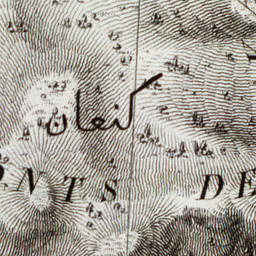 كنعان
ONTS DE